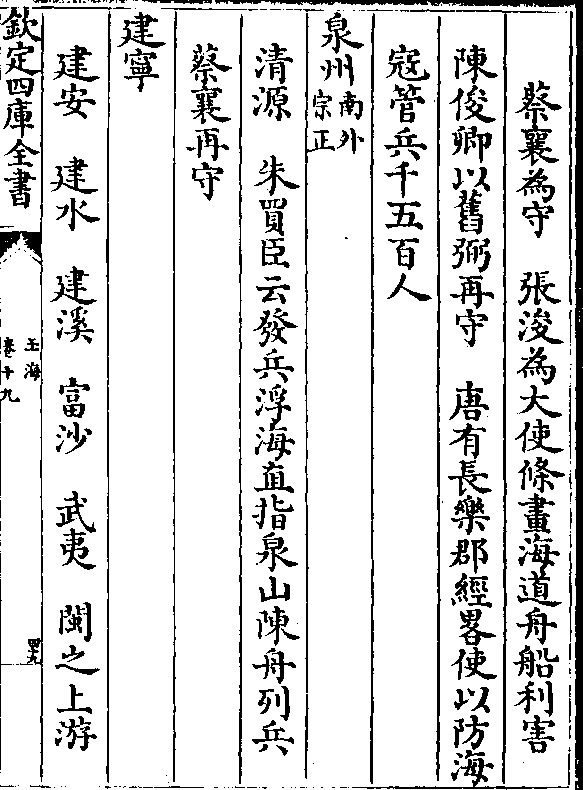 蔡襄為守　張浚為大使條畫海道舟船利害
陳俊卿以舊弼再守　唐有長樂郡經畧使以防海
寇管兵千五百人
泉州南外宗正
清源　朱買臣云發兵浮海直指泉山陳舟列兵
蔡襄再守
建寧
建安　建水　建溪　富沙　武夷　閩之上游
欽定四庫全書
玉海
卷十九
四九